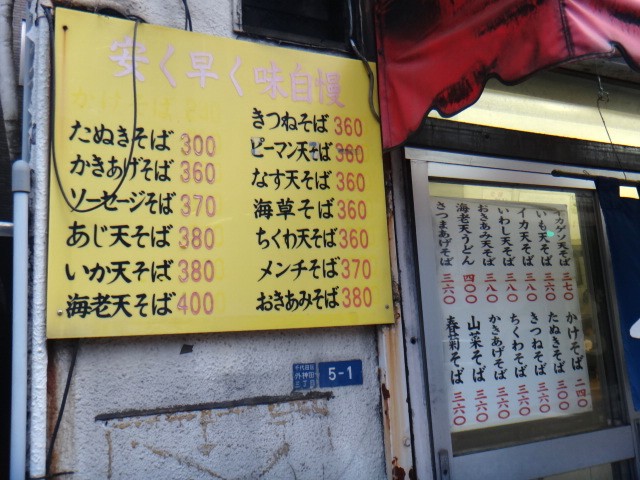 安く早く味自慢
かけそば
たぬきそば 300
かきあげそば 360
ソーセージそば 370
あじ天そば 380
いか天そば 380
海老天そば 400
きつねそば 360
ピーマン天そば 360
なす天そば 360
海草そば 360
ちくわ天そば 360
メンチそば 370
おきあみそば 380
千代田区
外神田
三丁目
5-1
イカゲソ天そば 三七〇
いも天そば 三六〇
イカ天そば 三八〇
いわし天そば 三八〇
おきあみ天そば 三八〇
海老天うどん 四〇〇
さつまあげそば 三六〇
かけそば 二四〇
たぬきそば 三〇〇
きつねそば 三六〇
ちくわそば 三六〇
かきあげそば 三六〇
山菜そば 三六〇
春菊そば 三六〇